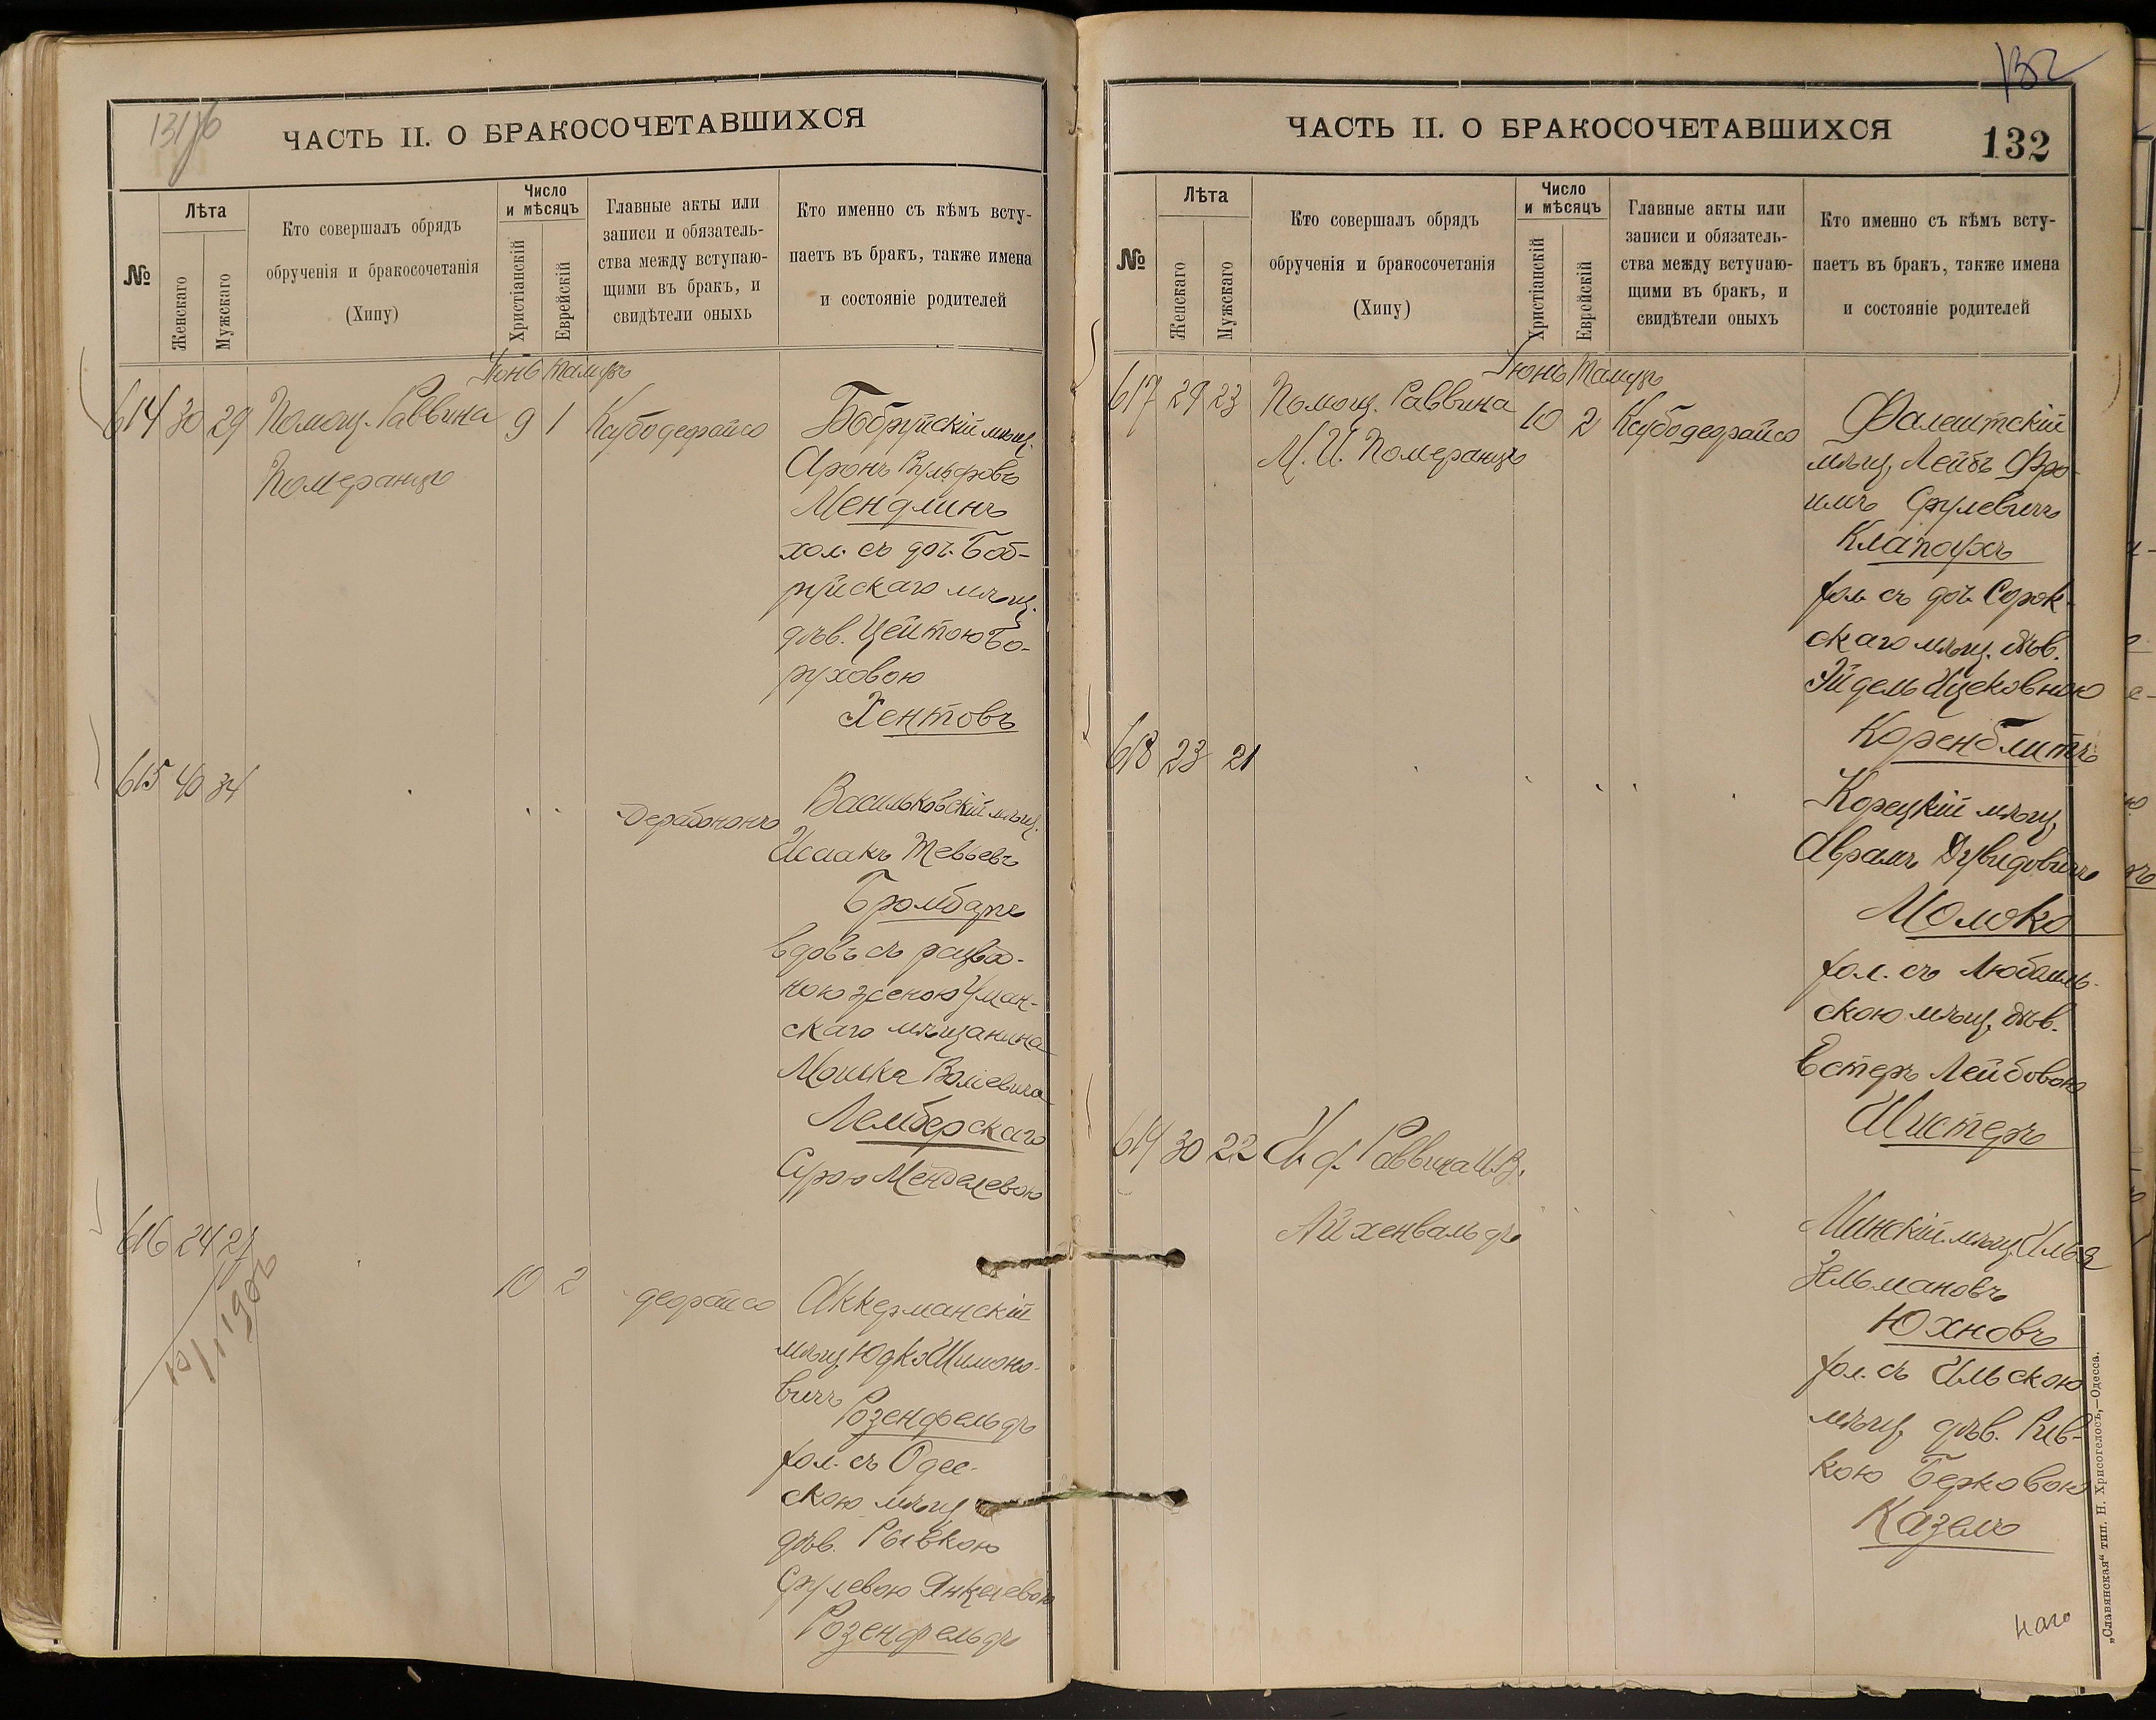 131 об
ЧАСТЬ II. О БРАКОСОЧЕТАВШИХСЯ
№
Лѣта
Женскаго
Мужскаго
Кто совершалъ обрядъ
обрученія и бракосочетанія
(Хипу)
Число
и мѣсяцъ
Христіанскій
Еврейскій
Главные акты или
записи и обязатель-
ства между вступаю-
щими въ бракъ, и
свидѣтели оныхъ
Кто именно съ кѣмъ всту-
паетъ въ бракъ, также имена
и состояніе родителей
Іюнь Тамузъ
614 30 29 Помощ. Раввина 9 1 Кубодерайсо Бобруйскій мѣщ.
Померанцъ
Аронъ Вульфовъ
Мендлинъ
хол. съ доч. Боб-
руйскаго мѣщ.
дѣв. Цейтою Бо-
руховою
Хентовъ
615 40 34 Дерабононъ Васильковскій мѣщ.
Исаакъ Тевьевъ
Бромбарг
вдовъ съ разве-
ною женою Уман-
скаго мѣщанина
Мошка Волевича
Лемберскаго
Сурою Менделевою
616 24 27
10 2 дерайсо Аккерманскій
мѣщ. Юдко Шимоно-
вичъ
Розенфельдъ
хол. съ Одес-
скою мѣщ
дѣв. Рывкою
Срулевою Янкелевою
Розенфельдъ
132
ЧАСТЬ II. О БРАКОСОЧЕТАВШИХСЯ
132
№
Лѣта
Женскаго
Мужскаго
Кто совершалъ обрядъ
обрученія и бракосочетанія
(Хипу)
Число
и мѣсяцъ
Христіанскій
Еврейскій
Главные акты или
записи и обязатель-
ства между вступаю-
щими въ бракъ, и
свидѣтели оныхъ
Кто именно съ кѣмъ всту-
паетъ въ бракъ, также имена
и состояніе родителей
Іюнь Тамузъ
617 29 23 Помощ. Раввина 10 2 Кубодерайсо Фалештскій
М. И. Померанцъ
мѣщ. Лейбъ Фро-
имъ Срулевичъ
Клапоухъ
хол. съ доч. Сорок-
скаго мѣщ. дѣв.
Эйдель Ицековною
Коренблитъ
618 23 21
Корецкій мѣщ.
Аврамъ Дувидовичъ
Молоко
хол. съ Любомль-
скою мѣщ. дѣв.
Естеръ Лейбовою
Шистеръ
619 30 22 И. д. Раввина И. В.
Айхенвальдъ
Минскій мѣщ. Илья
Зельмановъ
Юхновъ
хол. съ Ильскою
мѣщ. дѣв. Рив-
кою Берковою
Казель
наго
„Славянская“ тип. Н. Хрисогелосъ,—Одесса.